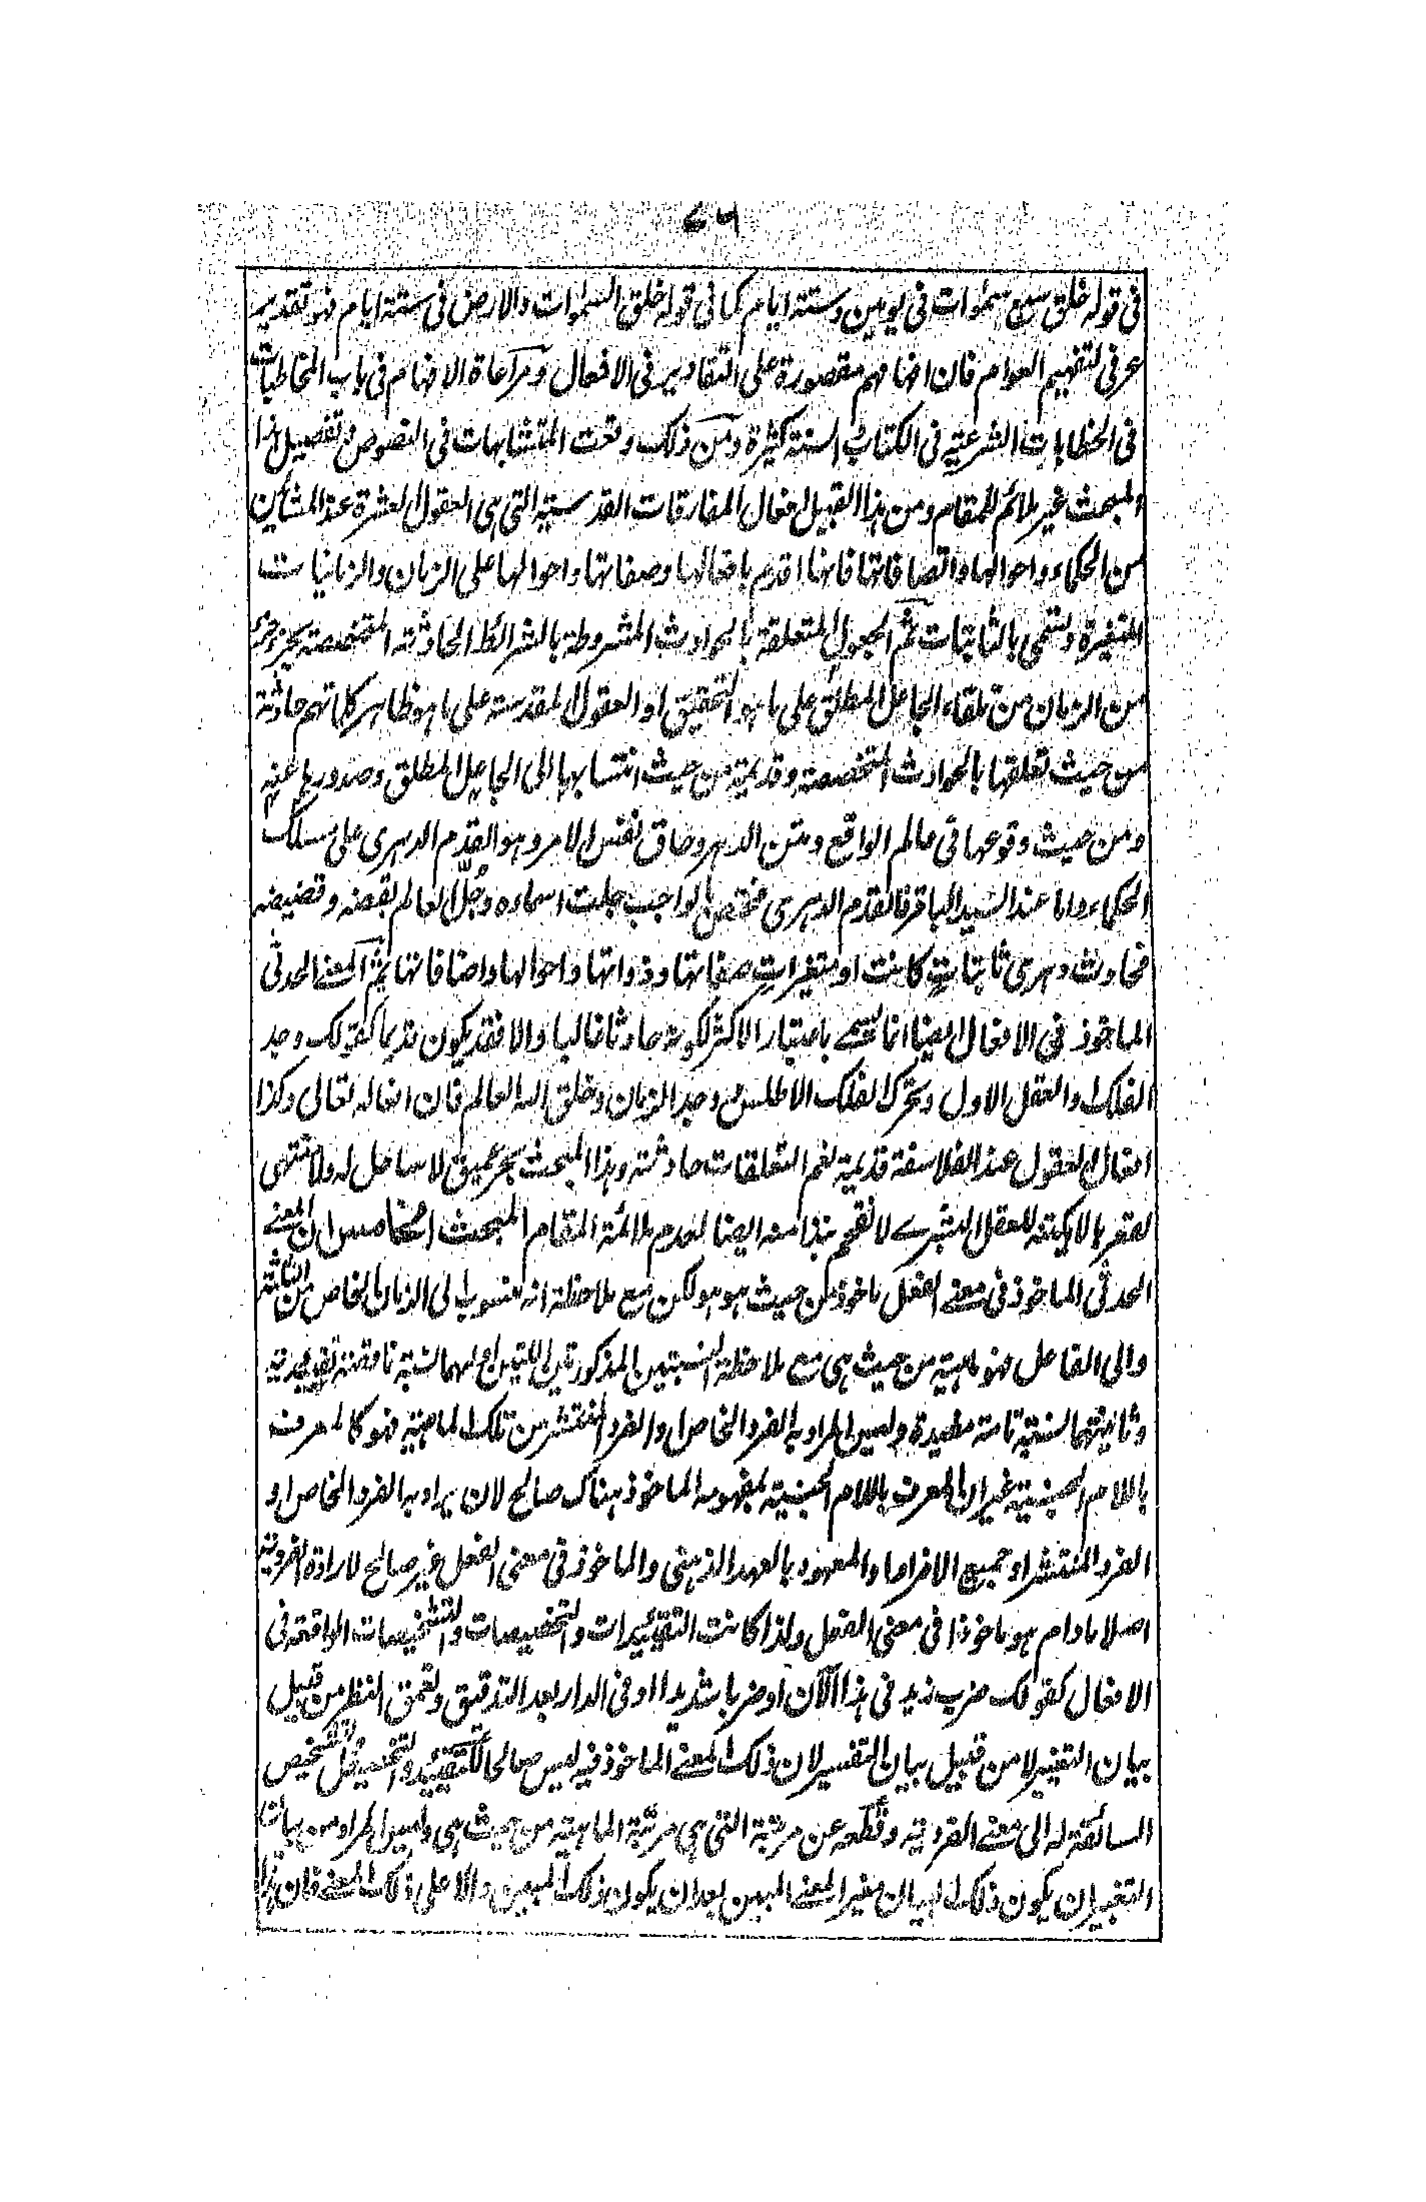 ٧٦
فى قوله خلق سبع سموات فى يومين وستة ايام كما فى قوله خلق السموات والارض فى ستة ايام فهو تقدير
عرفى لتفهيم العوام فان افهامهم مقصورة على التقادير فى الافعال ومراعاة الافهام فى باب المخاطبات
فى الخطابات الشرعية فى الكتاب والسنة كثيرة ومن ذلك وقعت المتشابهات فى النصوص وتفصيل هذا
المبحث غير ملائم للمقام ومن هذا القبيل افعال المفارقات القدسية التى هى العقول العشرة عند المشائين
من الحكماء واحوالها واتصافاتها فانها اقدم بافعالها وصفاتها واحوالها على الزمان والزمانيات
المتغيرة وتسمى بالثابتات ثم الجعول المتعلقة بالحوادث المشروطة بالشرائط الحادثة المتخصصة بجزء جزء
من الزمان من تلقاء الجاعل المطلق على ما هو التحقيق او العقول المقدسة على ما هو ظاهر كلامهم حادثة
من حيث تعلقها بالحوادث المتخصصة وقديمة من حيث انتسابها الى الجاعل المطلق وصدورها عنه
ومن حيث وقوعها فى عالم الواقع ومتن الدهر وحاق نفس الامر وهو القدم الدهرى على مسلك
الحكماء واما عند السيد الباقر فالقدم الدهرى مختص بالواجب جلت اسماءه وجُلّ العالم بقضه وقضيضه
فحادث دهرى ثابتات كانت او متغيرات صفاتها وذواتها واحوالها واضافاتها ثم المعنے الحدثى
الماخوذ فى الافعال ايضا انما يسمے باعتبار الاكثر لكونه حادثا غالبا والا فقد يكون قديما كقولك وجد
الفلك والعقل الاول وتحرك الفلك الاطلس ووجد الزمان وخلق الله العالم فان افعاله تعالى وكذا
افعال العقول عند الفلاسفة قديمة نعم التعلقات حادثة وهذا المبحث بحر عميق لا ساحل له ولا منتهى
لقعره بالايمكنه للعقل البشرے لا نقحم هذا منه ايضا لعدم ملائمة المقام المبحث الخامس ان المعنے
الحدثى الماخوذ فى معنے الفعل ماخوذ من حيث هو هو لكن مع ملاحظة انه منسوب الى الزمان الخاص من الثلثة
والى الفاعل فهو ماهية من حيث هى مع ملاحظة النسبتين المذكورتين اللتين اولهما نسبة ناقصة تقييدية
وثانيتهما نسبة تامة مفيدة وليس المراد به الفرد الخاص او الفرد المنتشر من تلك الماهية فهو كالمعرف
باللام الجنسية غير ان المعرف باللام الجنسية لمفهومه الماخوذ هناك صالح لان يراد به الفرد الخاص او
الفرد المنتشر او جميع الافراد والمعهود بالعهد الذهنى والماخوذ فى معنى الفعل غير صالح لارادة الفردية
اصلا مادام هو ماخوذا فى معنى الفعل ولذا كانت التقييدات والتخصيصات والتشخيصات الواقعة فى
الافعال كقولك ضرب زيد فى هذا الآن او ضربا شديدا او فى الدار بعد التدقيق وتعمق النظر من قبيل
بيان التغيير لا من قبيل بيان التفسير لان ذلك المعنے الماخوذ فيه ليس صالحا للتقييد والتخصيص والتشخيص
السائقة له الى معنے الفردية وقطعه عن مرتبة التى هى مرتبة الماهية من حيث هى وليس المراد من بيان
التغيير ان يكون ذلك البيان مغير المعنے المبين بعد ان يكون ذلك المبين دالا على ذلك المعنے فان هذا